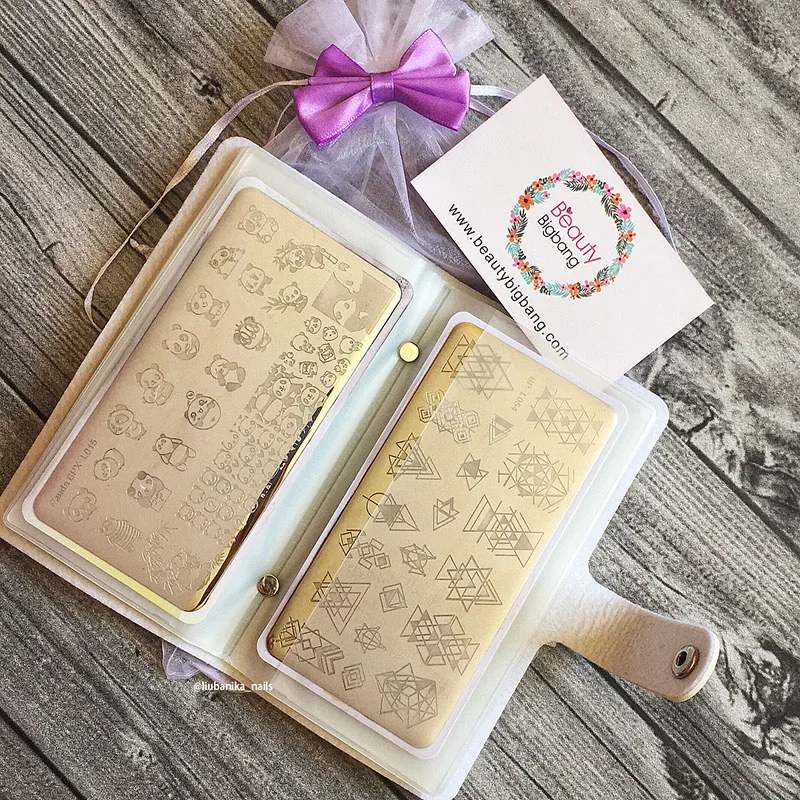 Beauty
Bigbang
www.beautybigbang.com
Panda BPX-L015
@liubanika_nails